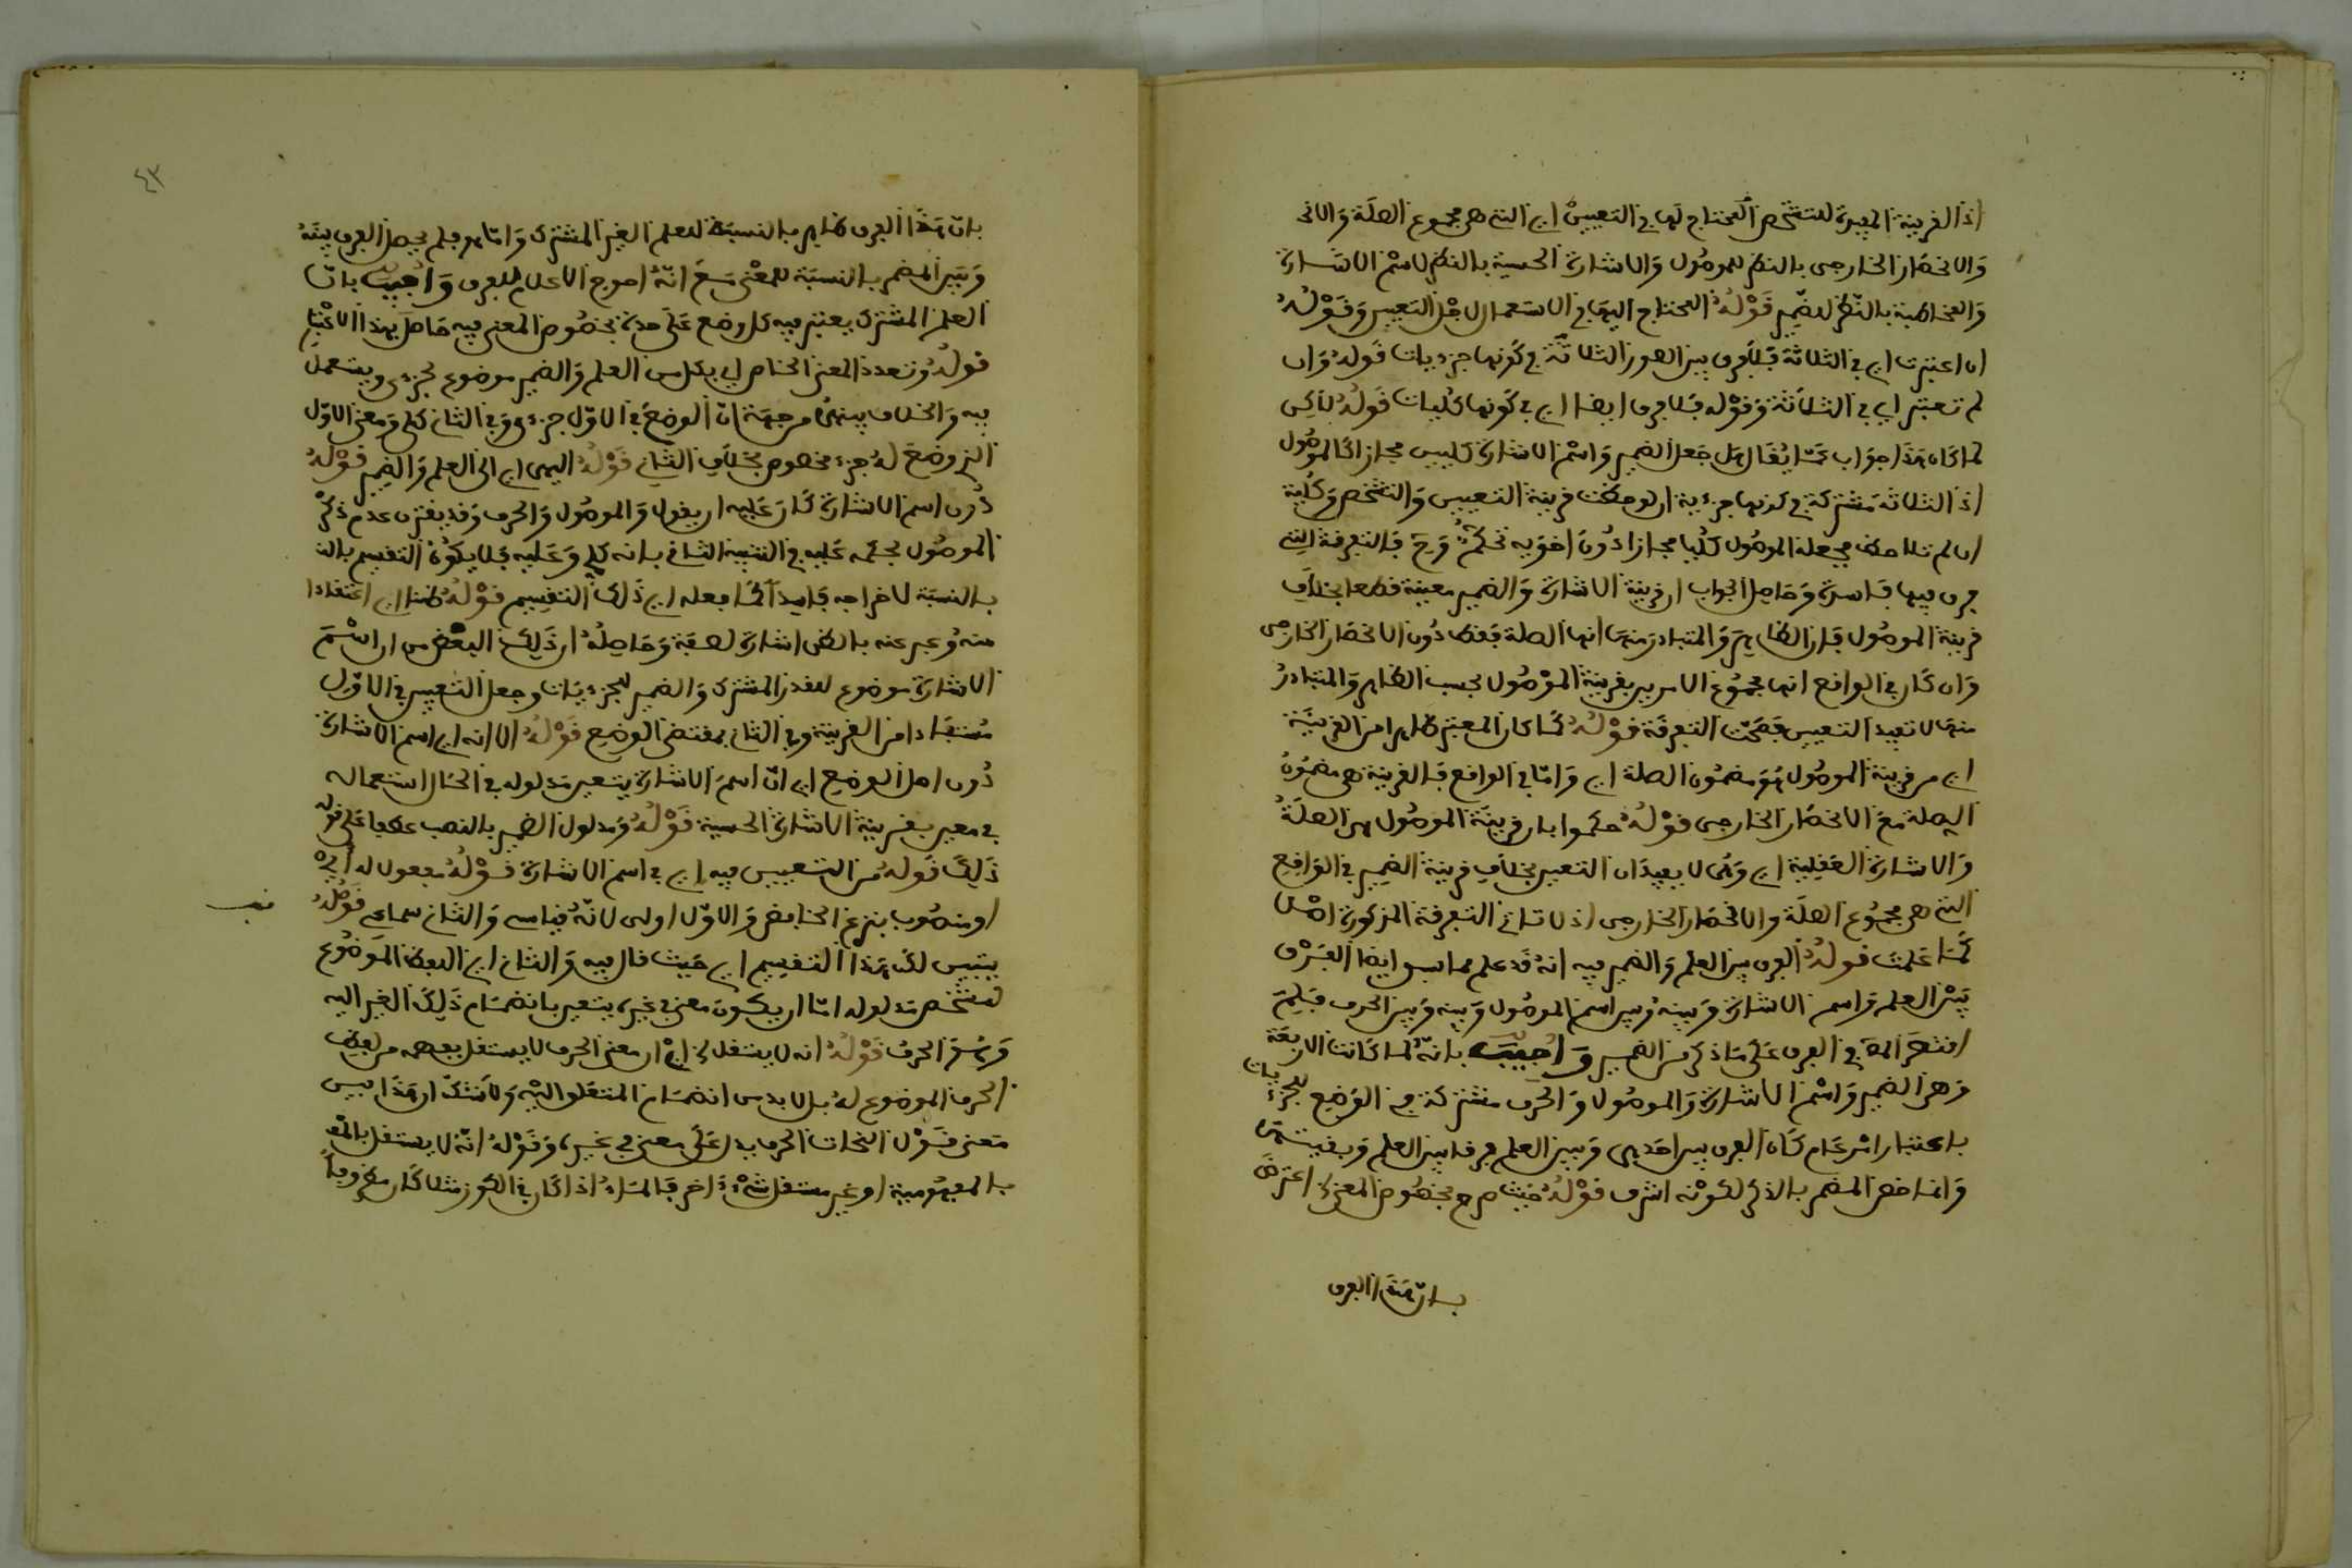 اذ القرينة المفيدة للتشخص المحتاج لها في التعيين اي التي هي مجموع الصلة والانح
والانحصار الخارجي بالنظر للموصول والاشارة الحسية بالنظر لاسم الاشارة
والمخاطبة بالنظر للضمير قوله المحتاج اليها في الاستعمال لاجل التعيين وقوله
ان اعتبرت اي في الثلاثة فلا فرق بين الصور الثلاثة في كونها جزءيات قوله وان
لم تعتبر اي في الثلاثة وقوله فلا فرق ايضا اي في كونها كليات قوله لاكن
لما كان هذا جواب عما يقال هل جعل الضمير واسم الاشارة كليين مجازا كالموصول
اذ الثلاثة مشتركة في كونها جزءية ان لوحظت قرينة التعيين والتشخص وكلية
ان لم تلاحظ فجعله الموصول كليا مجازا دون اخويه تحكم وح فالتفرقة التي
فرق فيها فاسدة وحاصل الجواب ان قرينة الاشارة والضمير معينة قطعا بخلاف
قرينة الموصول فان الظاهر والمتبادر منها انها الصلة فقط دون الانحصار الخارجي
وان كان في الواقع انها مجموع الامرين فقرينة الموصول بحسب الظاهر والمتبادر
منها لا تفيد التعيين فصحت التفرقة قوله لما كان المعتبر ظاهرا من القرينة
اي من قرينة الموصول هو مضمون الصلة اي واما في الواقع فالقرينة هي مضمون
الصلة مع الانحصار الخارجي قوله حكموا بان قرينة الموصول هي الصلة
والاشارة العقلية اي وهي لا يفيدان التعيين بخلاف قرينة الضمير في الواقع
التي هي مجموع الصلة والانحصار الخارجي اذ لا تتاتى التفرقة المذكورة اصلا
كما علمت قوله الفرق بين العلم والضمير فيه انه قد علم مما سبق ايضا الفرق
بين العلم واسم الاشارة وبينه وبين اسم الموصول وبينه وبين الحرف فلم
اقتصر المص في الفرق على ما ذكر من الضمير واجيب بانه لما كانت الاربعة
وهي الضمير واسم الاشارة والموصول والحرف مشتركة في الوضع للجزءيات
باعتبار امر عام كان الفرق بين احدها وبين العلم فرقا بين العلم وبقيتها
وانما خص المضمر بالذكر لكونه اشرف قوله حيث صرح بخصوص المعنى اعترض
بان هذا الفرق
٤٣
بان هذا الفرق ظاهر بالنسبة للعلم الغير المشترك واما هو فلم يحصل الفرق بينه
وبين المضمر بالنسبة للمعنى مع انه احوج الاعلام للفرق واجيب بان
العلم المشترك يعتبر فيه كل وضع على حدته فخصوص المعنى فيه حاصل بهذا الاعتبار
قوله وتعدد المعنى الخاص اي بكل من العلم والضمير موضوع لجزءي ويستعمل
فيه والخلاف بينهما من جهة ان الوضع في الاول جزءي وفي الثاني كلي ومعنى الاول
الذي وضع له جزء مخصوص بخلاف الثاني قوله اليهما اي الى العلم والضمير قوله
دون اسم الاشارة كان عليه ان يقول والموصول والحرف وقد يقترن عدم ذكر
الموصول بحكمه عليه في التنبيه الثاني بانه كلي وعليه فلا يكون التقسيم بالن
بالنسبة لاخراجه فاسدا كما فعله اي ذلك التقسيم قوله ظنا اي اعتقادا
منه وعبر عنه بالظن اشارة لضعفه وحاصله ان ذلك البعض من ان اسم
الاشارة موضوع للقدر المشترك والضمير للجزءيات وجعل التعيين في الاول
مستفادا من القرينة وفي الثاني بمقتضى الوضع قوله الا انه اي اسم الاشارة
دون اصل الوضع اي ان اسم الاشارة يتعين مدلوله في الحال استعماله
في معين بقرينة الاشارة الحسية قوله ومدلول الضمير بالنصب عطفا على قوله
ذلك قوله من التعيين فيه اي في اسم الاشارة قوله مفعول له
او منصوب بنزع الخافض والاول اولى لانه قياسي والثاني سماعي قوله
يتبين لك هذا التقسيم اي حيث قال فيه والثاني اي اللفظ الموضوع
لمشخص مدلوله اما ان يكون معنى في غيره يتعين بانضمام ذلك الغير اليه
وهو الحرف قوله انه لا يستقل اي ان معنى الحرف لا يستقل بفهمه من لفظ
الحرف الموضوع له بل لا بد من انضمام المتعلق اليه ولا شك ان هذا ليس
معنى قول النحات الحرف يدل على معنى في غيره وقوله انه لا يستقل بالمف
بالمفهومية او غير مستقل شيء اخر فالماء اذا كان في الكوز مثلا كان مظروفا